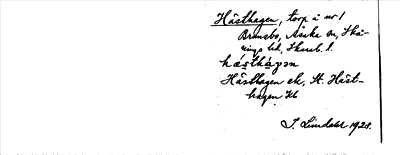 Hästhagen, torp å nr 1
Brunsbo, Åska sn, Skå-
nings hd, Skarab. l.
hásthàgan
Hästhagen ek, St. Häst-
hagen Kb
J. Lindahl 1928.